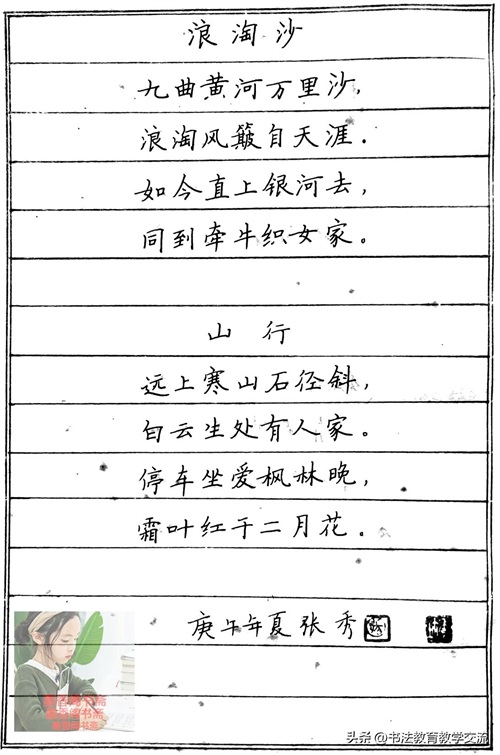 浪淘沙
九曲黄河万里沙,
浪淘风簸自天涯.
如今直上银河去,
同到牵牛织女家。
山 行
远上寒山石径斜,
白云生处有人家。
停车坐爱枫林晚,
霜叶红于二月花。
庚午年夏 张秀
头条 @书法教育教学交流